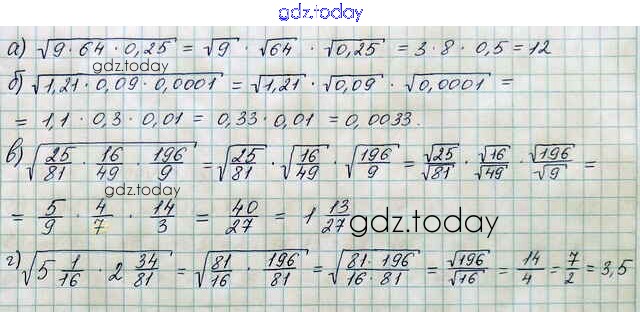 gdz.today
а) √(9 · 64 · 0,25) = √9 · √64 · √0,25 = 3 · 8 · 0,5 = 12
gdz.today
б) √(1,21 · 0,09 · 0,0001) = √1,21 · √0,09 · √0,0001 =
= 1,1 · 0,3 · 0,01 = 0,33 · 0,01 = 0,0033.
в) √(25/81 · 16/49 · 196/9) = √(25/81) · √(16/49) · √(196/9) = √25/√81 · √16/√49 · √196/√9 =
gdz.today
= 5/9 · 4/7 · 14/3 = 40/27 = 1 13/27
gdz.today
г) √(5 1/16 · 2 34/81) = √(81/16 · 196/81) = √(81 · 196/16 · 81) = √196/√16 = 14/4 = 7/2 = 3,5